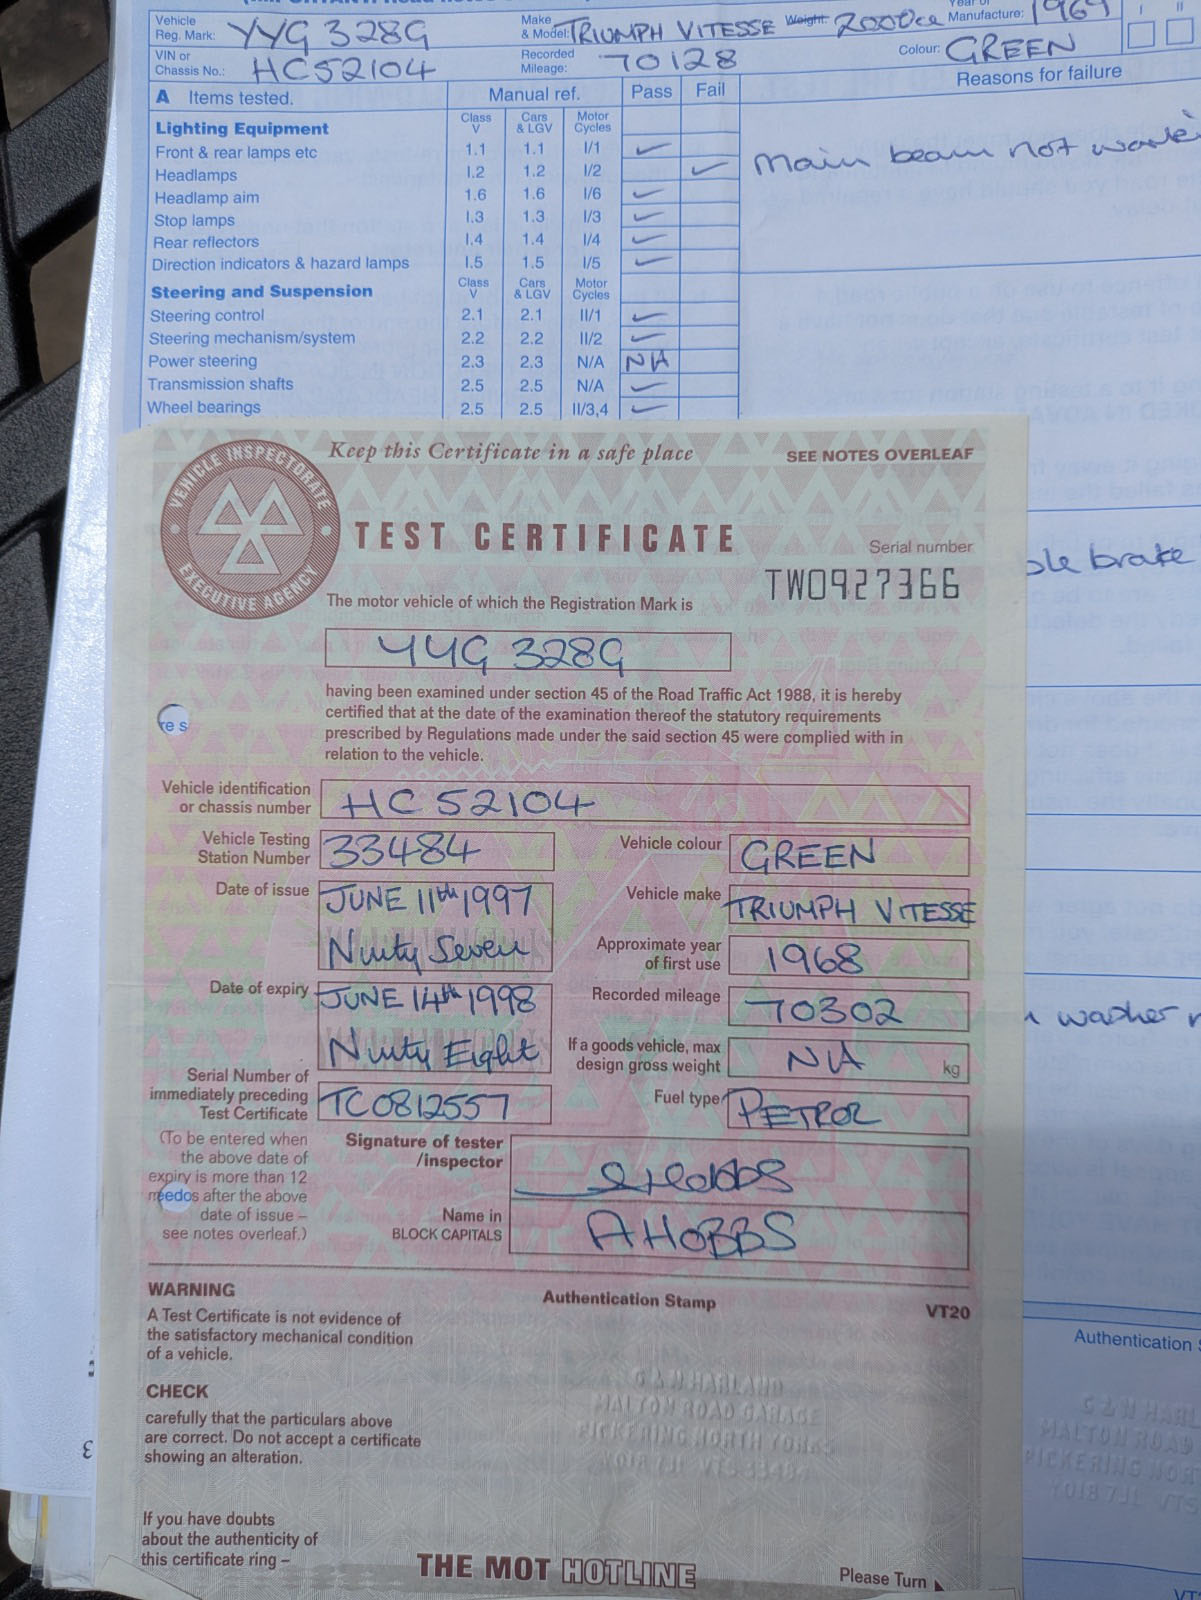 Vehicle Reg. Mark: YYG 328G Make & Model: TRIUMPH VITESSE Weight: 2000cc Manufacture: I II
VIN or Chassis No.: HC52104 Recorded Mileage: 70128 Colour: GREEN
A Items tested. Manual ref. Pass Fail Reasons for failure
Lighting Equipment Class V Cars & LGV Motor Cycles
Front & rear lamps etc 1.1 1.1 I/1 ✓
Headlamps 1.2 1.2 I/2 ✓ Main beam not
Headlamp aim 1.6 1.6 I/6 ✓
Stop lamps 1.3 1.3 I/3 ✓
Rear reflectors 1.4 1.4 I/4 ✓
Direction indicators & hazard lamps 1.5 1.5 I/5 ✓
Steering and Suspension Class V Cars & LGV Motor Cycles
Steering control 2.1 2.1 II/1 ✓
Steering mechanism/system 2.2 2.2 II/2 ✓
Power steering 2.3 2.3 N/A NA
Transmission shafts 2.5 2.5 N/A ✓
Wheel bearings 2.5 2.5 II/3,4 ✓
brake
washer
Authentication
VEHICLE INSPECTORATE
EXECUTIVE AGENCY
Keep this Certificate in a safe place SEE NOTES OVERLEAF
TEST CERTIFICATE Serial number
TW0927366
The motor vehicle of which the Registration Mark is
YYG 328G
having been examined under section 45 of the Road Traffic Act 1988, it is hereby
certified that at the date of the examination thereof the statutory requirements
prescribed by Regulations made under the said section 45 were complied with in
relation to the vehicle.
Vehicle identification or chassis number HC 52104
Vehicle Testing Station Number 33484 Vehicle colour GREEN
Date of issue JUNE 11th 1997 Vehicle make TRIUMPH VITESSE
Ninty Seven Approximate year of first use 1968
Date of expiry JUNE 14th 1998 Recorded mileage 70302
Ninty Eight If a goods vehicle, max design gross weight NA kg
Serial Number of immediately preceding Test Certificate TC0812557 Fuel type PETROL
(To be entered when
the above date of
expiry is more than 12
after the above
date of issue –
see notes overleaf.)
Signature of tester /inspector
Name in BLOCK CAPITALS A HOBBS
WARNING Authentication Stamp VT20
A Test Certificate is not evidence of
the satisfactory mechanical condition
of a vehicle.
CHECK
carefully that the particulars above
are correct. Do not accept a certificate
showing an alteration.
G & N HARLAND
MALTON ROAD GARAGE
PICKERING NORTH YORKS
YO18 7JL VTS 33484
If you have doubts
about the authenticity of
this certificate ring –
THE MOT HOTLINE Please Turn